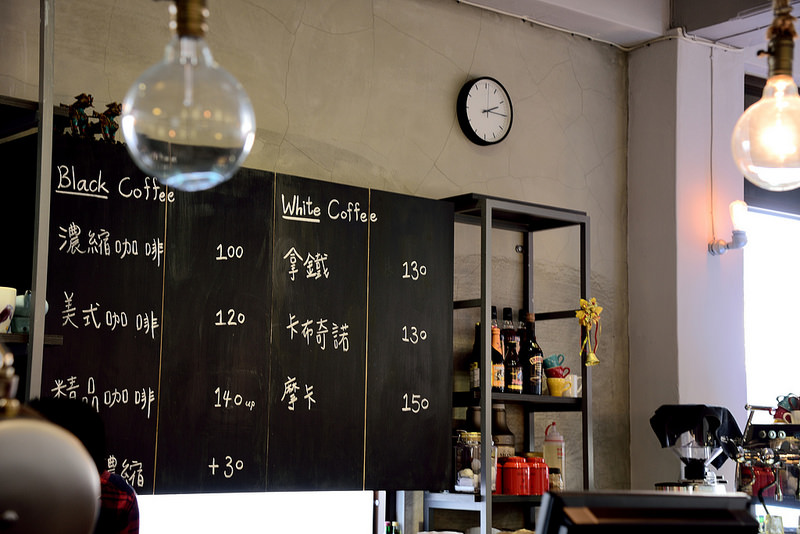 Black Coffee
濃縮咖啡 100
美式咖啡 120
精品咖啡 140 up
濃縮 +30
White Coffee
拿鐵 130
卡布奇諾 130
摩卡 150